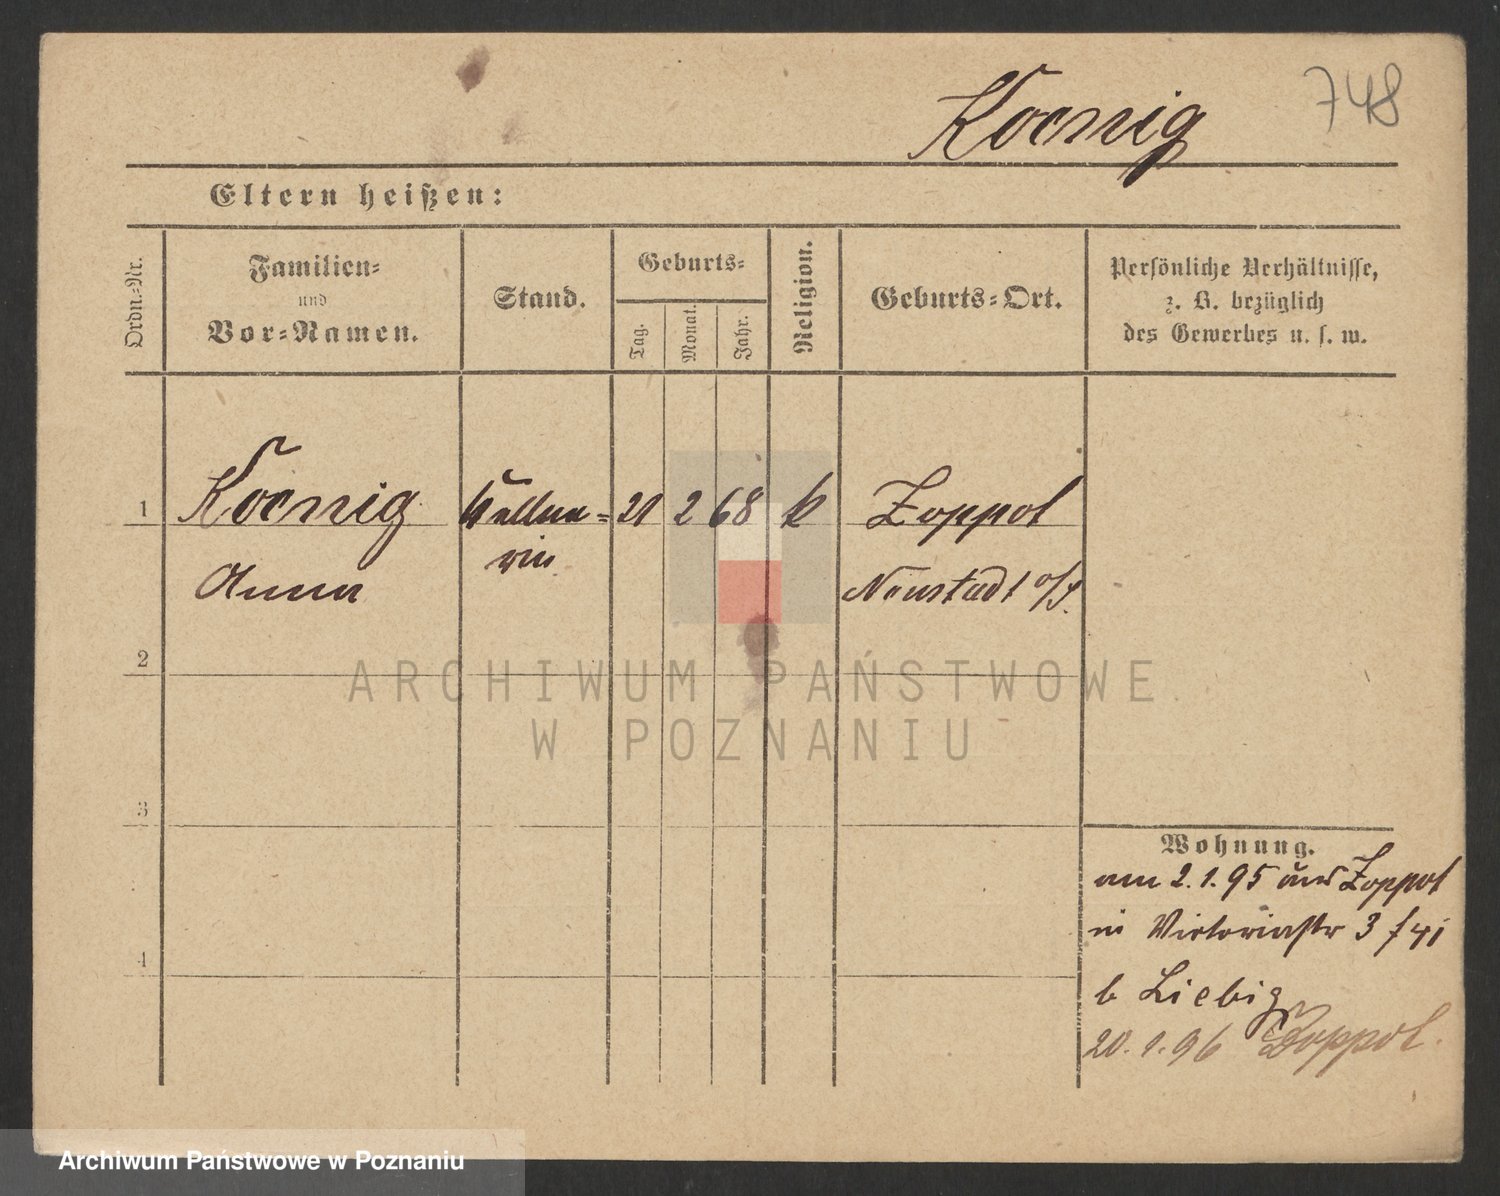 Koenig
748
Eltern heißen:
Ordn.-Nr.
Familien-
und
Vor-Namen.
Stand.
Geburts-
Tag.
Monat.
Jahr.
Religion.
Geburts-Ort.
Persönliche Verhältnisse,
z. B. bezüglich
des Gewerbes u. s. w.
1
Koenig
Anna
Kellne-
rin
21
2
68
k
Zoppot
Neustadt
2
3
4
Wohnung.
am 2.1.95 aus Zoppot
in Victoriastr 3
b Liebig
20.1.96 Zoppot.
ARCHIWUM PAŃSTWOWE
W POZNANIU
Archiwum Państwowe w Poznaniu